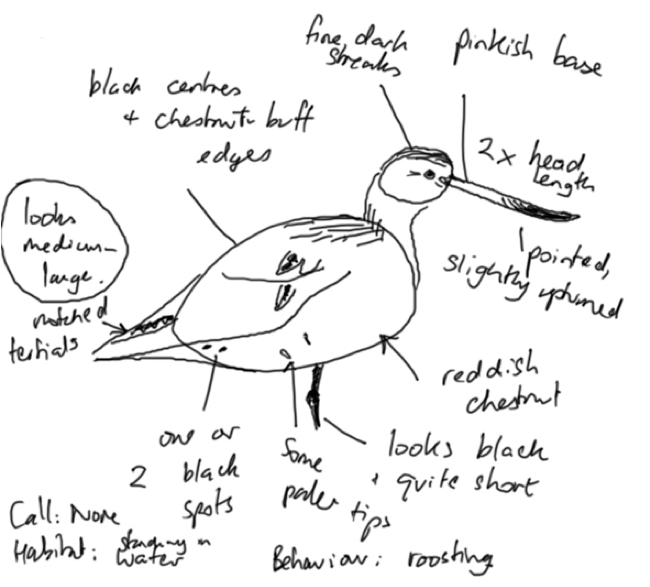 fine dark
streaks
pinkish base
black centres
+ chestnut-buff
edges
2x head
length
looks
medium-
large.
pointed,
slightly upturned
notched
tertials
reddish
chestnut
one or
2 black
spots
some
paler tips
looks black
+ quite short
Call: None
Habitat: standing in
water
Behaviour: roosting